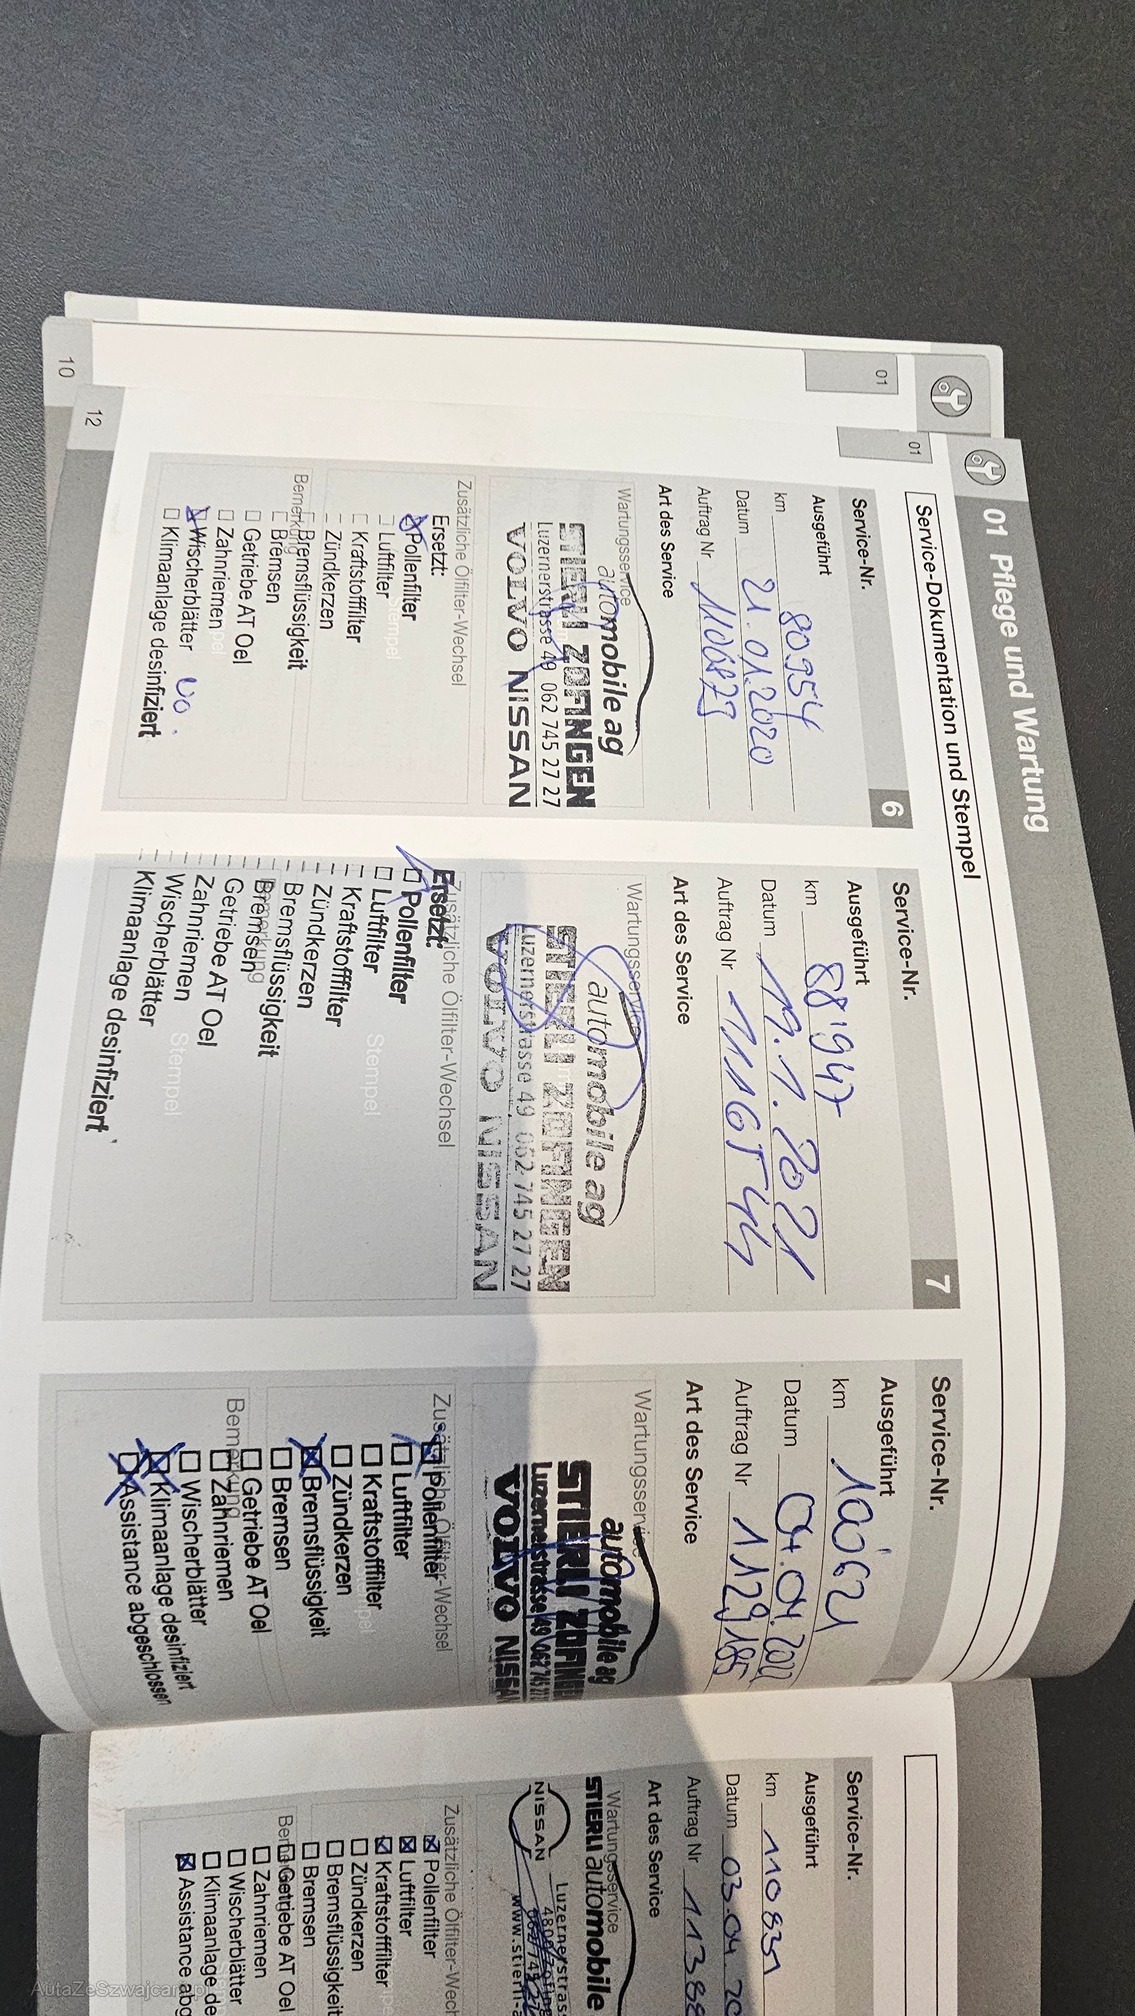 01 Pflege und Wartung
Service-Dokumentation und Stempel
01
01
10
12
Service-Nr.
6
Ausgeführt
km 80954
Datum 21.01.2020
Auftrag Nr
Art des Service
Wartungsservice
automobile ag
STIERLI ZOFINGEN
Luzernerstrasse 49 062 745 27 27
VOLVO NISSAN
Zusätzliche Ölfilter-Wechsel
Ersetzt:
Pollenfilter
Luftfilter
Kraftstofffilter
Zündkerzen
Bremsflüssigkeit
Bemerkung
Bremsen
Getriebe AT Oel
Zahnriemen
Wischerblätter
Klimaanlage desinfiziert
Service-Nr.
7
Ausgeführt
km 88'947
Datum 19.1.2021
Auftrag Nr 1116544
Art des Service
Wartungsservice
automobile ag
STIERLI ZOFINGEN
Luzernerstrasse 49 062 745 27 27
VOLVO NISSAN
Zusätzliche Ölfilter-Wechsel
Ersetzt:
Pollenfilter
Luftfilter
Kraftstofffilter
Stempel
Zündkerzen
Bremsflüssigkeit
Bemerkung
Bremsen
Getriebe AT Oel
Zahnriemen
Wischerblätter
Stempel
Klimaanlage desinfiziert
Service-Nr.
Ausgeführt
km 100'621
Datum 04.04.2022
Auftrag Nr 1129185
Art des Service
Wartungsservice
automobile ag
STIERLI ZOFINGE
Luzernerstrasse 49 062 745 27
VOLVO NISSA
Zusätzliche Ölfilter-Wechsel
Pollenfilter
Luftfilter
Kraftstofffilter
Zündkerzen
Bremsflüssigkeit
Bremsen
Getriebe AT Oel
Bemerkung
Zahnriemen
Wischerblätter
Klimaanlage desinfiziert
Assistance abgeschlossen
Service-Nr.
Ausgeführt
km 110831
Datum 03.04.20
Auftrag Nr
Art des Service
Wartungsservice
STIERLI automobile
NISSAN
Luzernerstras
www.stierli-
Zusätzliche Ölfilter-Wech
Pollenfilter
Luftfilter
Kraftstofffilter
Zündkerzen
Bremsflüssigkeit
Bremsen
Getriebe AT Oel
Zahnriemen
Wischerblätter
Klimaanlage de
Assistance abg
AutaZeSzwajcarii.pl